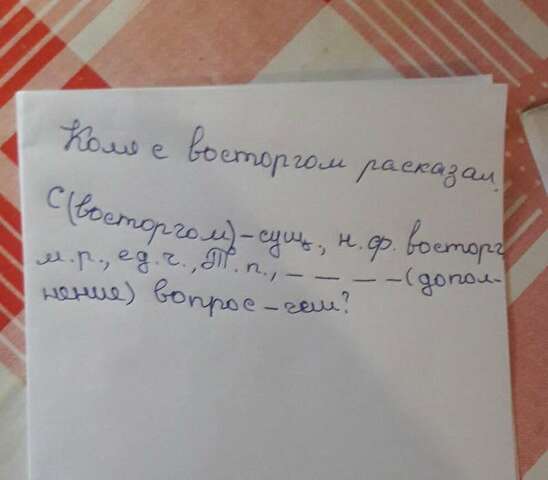 Коля с восторгом расказал.
С(восторгом)-сущ., н.ф. восторг
м.р., ед.ч., Т.п., _ _ _ _ -(допол-
нение) вопрос-чем?